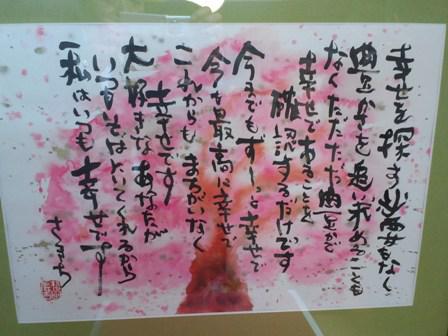 幸せを探す必要もなく
豊かさを追い求めることも
なくただただ豊かで
幸せであることを
確認するだけです
今までもずーっと幸せで
今も最高に幸せで
これからもまちがいなく
幸せです
大好きなあなたが
いつもそばにいてくれるから
私はいつも幸せです